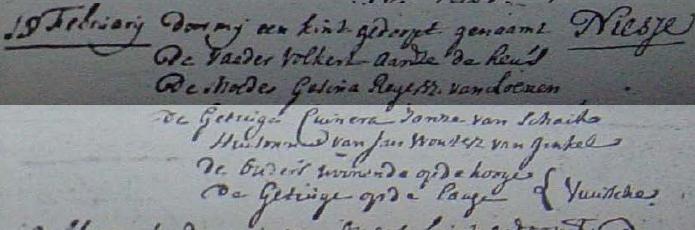 19 February door mij een kint gedoopt genaamt Niesje
De Vaeder Volkert Aartze de Heus
De Moeder Gesina Reyersz. van Loenen
De Getuige Cuinera Janze van Schaik
Huisvrouw van Jan Woutersz van Ginkel
De Ouders woonende op de hooge
De Getuige op de lange { Vuursche